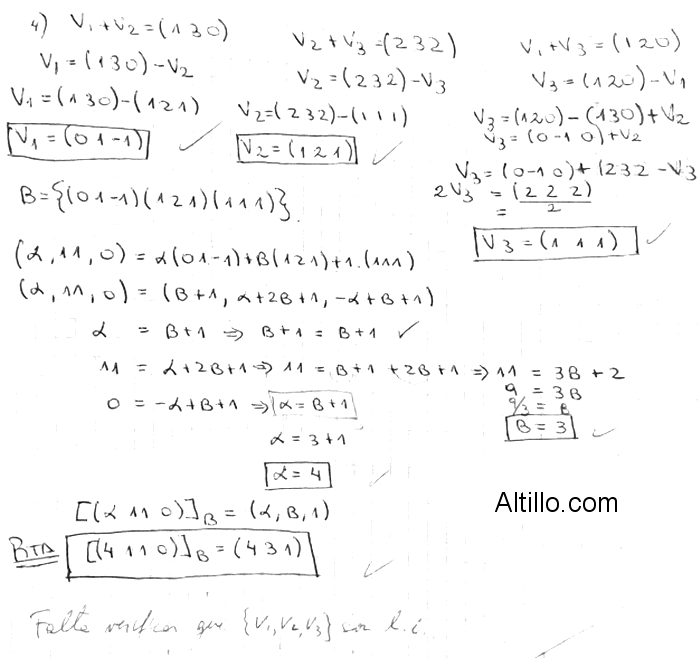 4) V1+V2=(130)
V1=(130)-V2
V1=(130)-(121)
V1=(01-1)
V2+V3=(232)
V2=(232)-V3
V2=(232)-(111)
V2=(121)
V1+V3=(120)
V3=(120)-V1
V3=(120)-(130)+V2
V3=(0-10)+V2
V3=(0-10)+(232-V3
2V3 = (222)
= 2
V3=(111)
B={(01-1)(121)(111)}.
(α,11,0)=α(01-1)+B(121)+1.(111)
(α,11,0)=(B+1, α+2B+1, -α+B+1)
α = B+1 ⇒ B+1=B+1 ✓
11 = α+2B+1 ⇒ 11=B+1+2B+1 ⇒ 11 = 3B+2
9 = 3B
9/3 = B
B=3
0 = -α+B+1 ⇒ α=B+1
α=3+1
α=4
[(α 11 0)]B=(α,B,1)
Altillo.com
RTA [(4 11 0)]B=(431)
Falta verificar que {V1,V2,V3} son l.i.